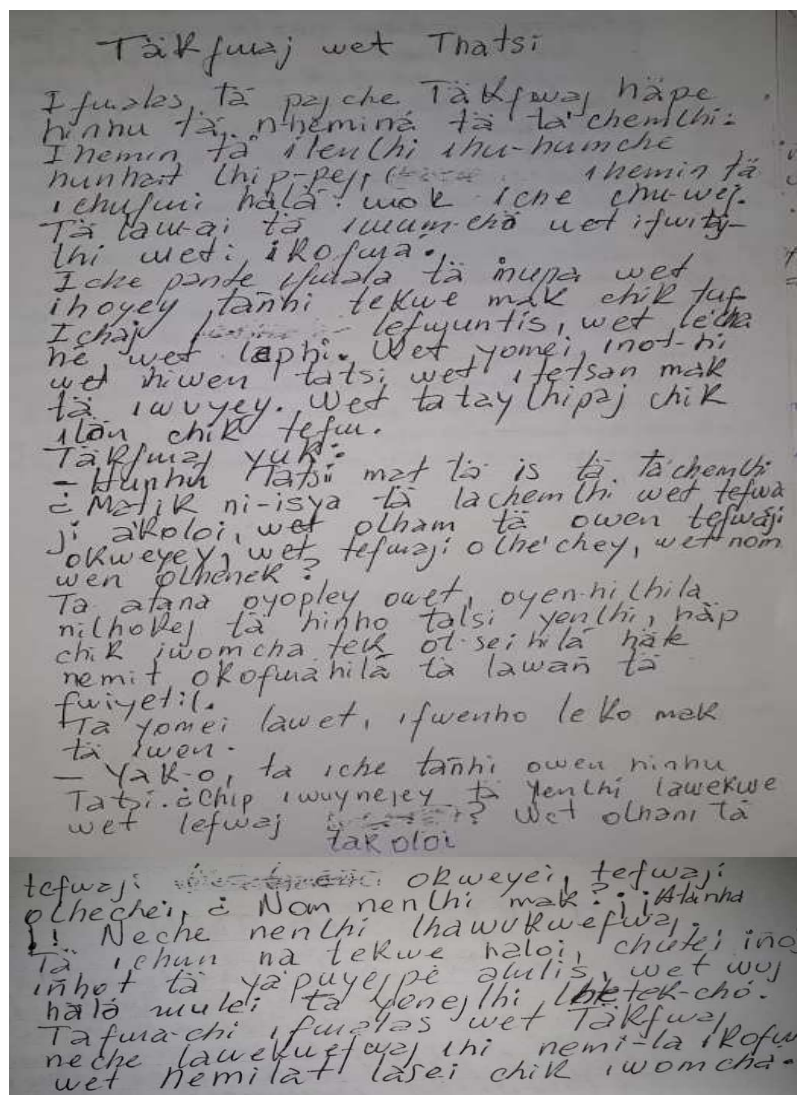 Täkfwaj wet Thatsi
Ifwalas, tä paj che Täkfwaj häpe
hinhu tä n-hemina tä ta'chemlhi.
Ihemin tä ilenlhi ihu-humche
hunhait lhip-pej, ihemin tä
ichufwi hälä mok iche chu-wej.
Tä law-ai tä iwum-chö wet ifwity-
lhi weti ikofwa.
Iche pante ifwala tä inupa wet
ihoyey tänhi tekwe mak chik tuf-
Ichaj lefwuntis, wet lecha
he wet laphi. Wet yomei, inot-hi
wet hiwen tatsi wet itetsan mak
tä iwuyey. Wet ta tay lhipaj chik
ilön chik tefw.
Täkfwaj yuk:
- Hunhu Tatsi mat tä is tä tächemlhi
¿ Matik ni-isya tä lachemlhi wet tefwa
ji akoloi, wet olham tä owen tefwaji
okweyey, wet tefwaji olhe'chey, wet nom
wen olhenek?
Ta atana oyopley owet, oyen-hilhila
nilhokej tä hinho tatsi yenlhi, häp
chik iwomcha tek ot-sei hilä häk
nemit okofwahilä tä lawan tä
fwiyetil.
Ta yomei lawet, ifwenho le ko mak
tä iwen.
- Yak-o, ta iche tänhi owen hinhu
Tatsi. ¿Chip iwuynejey tä yenlhi lawekwe
wet lefwaj ? Wet olham tä
takoloi
tefwaji okweyei, tefwaji
olhechei, ¿ Nom nenlhi mak? ¡¡ Atanha
!! Neche nenlhi lhawukwefwaj.
Tä ichun na tekwe haloi, chutei iño
iñhot tä yäpuyejpe alulis, wet wuj
hälö mulei tä yenejlhi lhetek-chö.
Tafwa-chi ifwalas wet Täkfwaj
neche lawekwefwaj lhi nemi-la ikofw
wet nemilat lasei chik iwomcha.